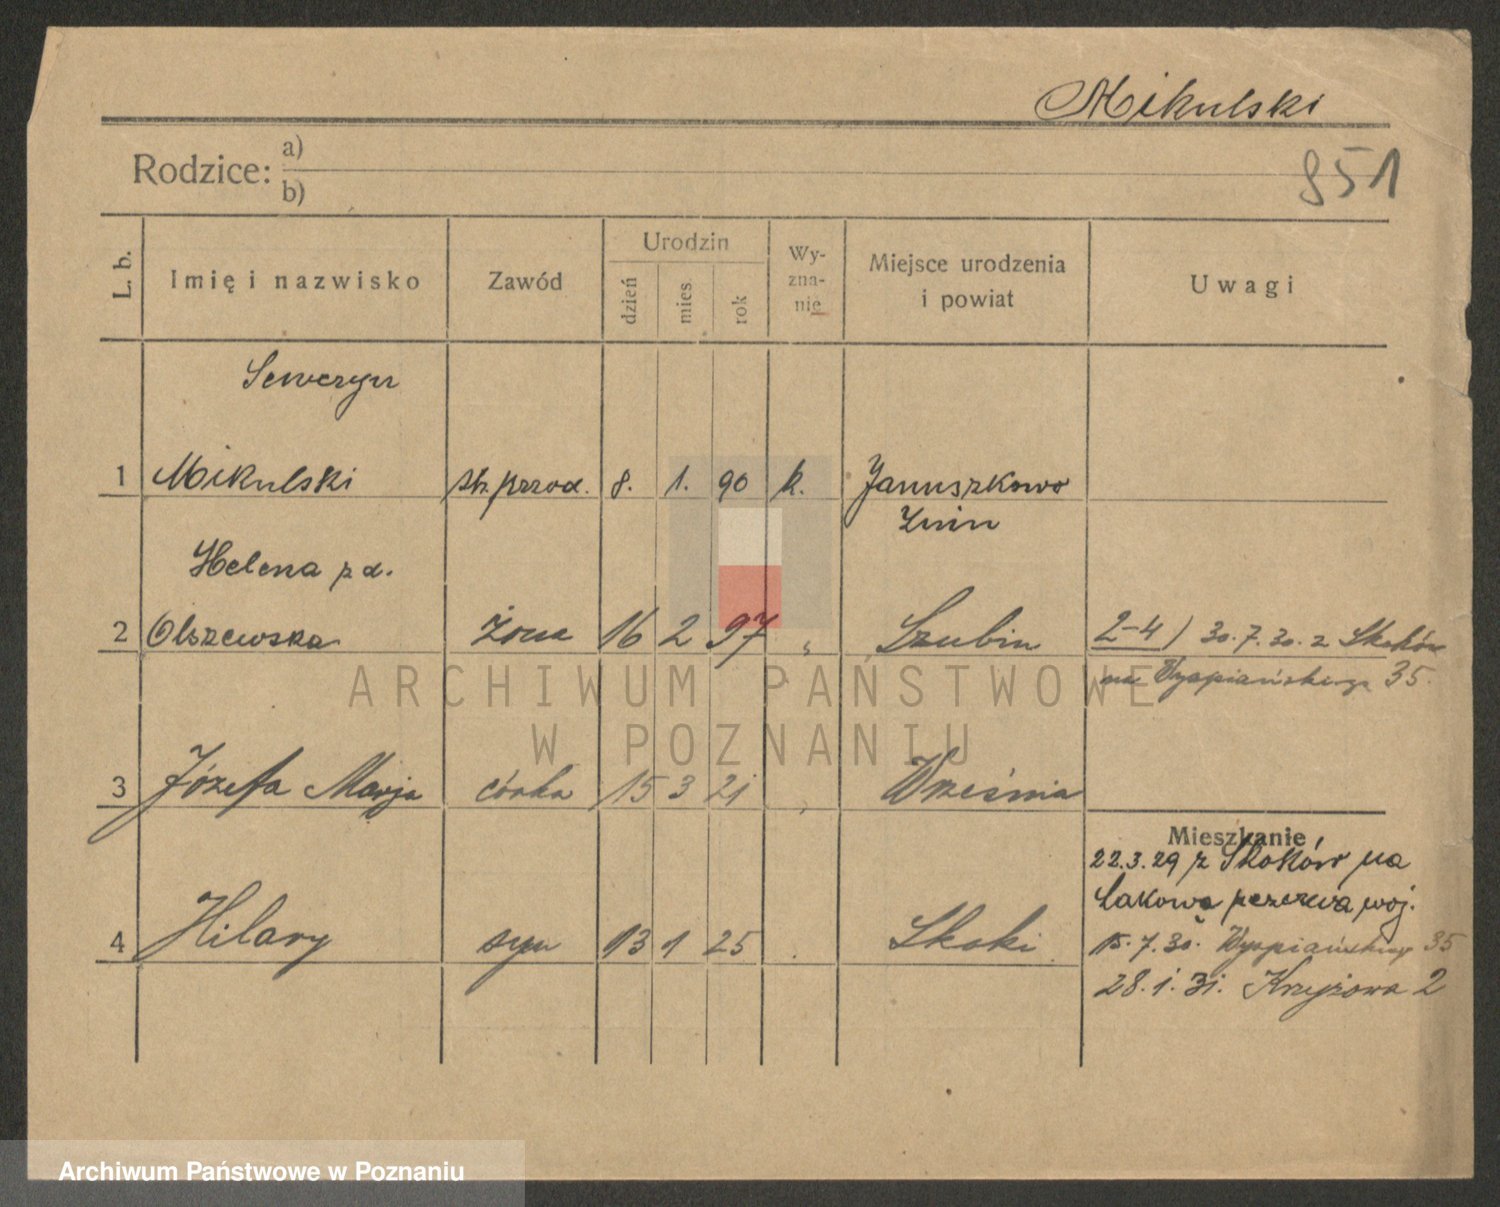 Mikulski
851
Rodzice: a)
b)
L. b. Imię i nazwisko Zawód Urodzin dzień mies. rok Wy-zna-nie Miejsce urodzenia i powiat Uwagi
Seweryn
1 Mikulski st. przod. 8. 1. 90 k. Januszkowo
Żnin
Helena z d.
2 Olszewska żona 16 2 97 „ Szubin 2-4) 30.7.30. z Skoków
na Wyspiańskiego 35.
ARCHIWUM PAŃSTWOWE
W POZNANIU
3 Józefa Marja córka 15 3 21 „ Września
Mieszkanie
22.3.29 z Skoków na
Łakową rezerwa woj.
4 Hilary syn 13 1 25 „ Skoki 15.7.30. Wyspiańskiego 35
28.1.31. Krzyżowa 2
Archiwum Państwowe w Poznaniu